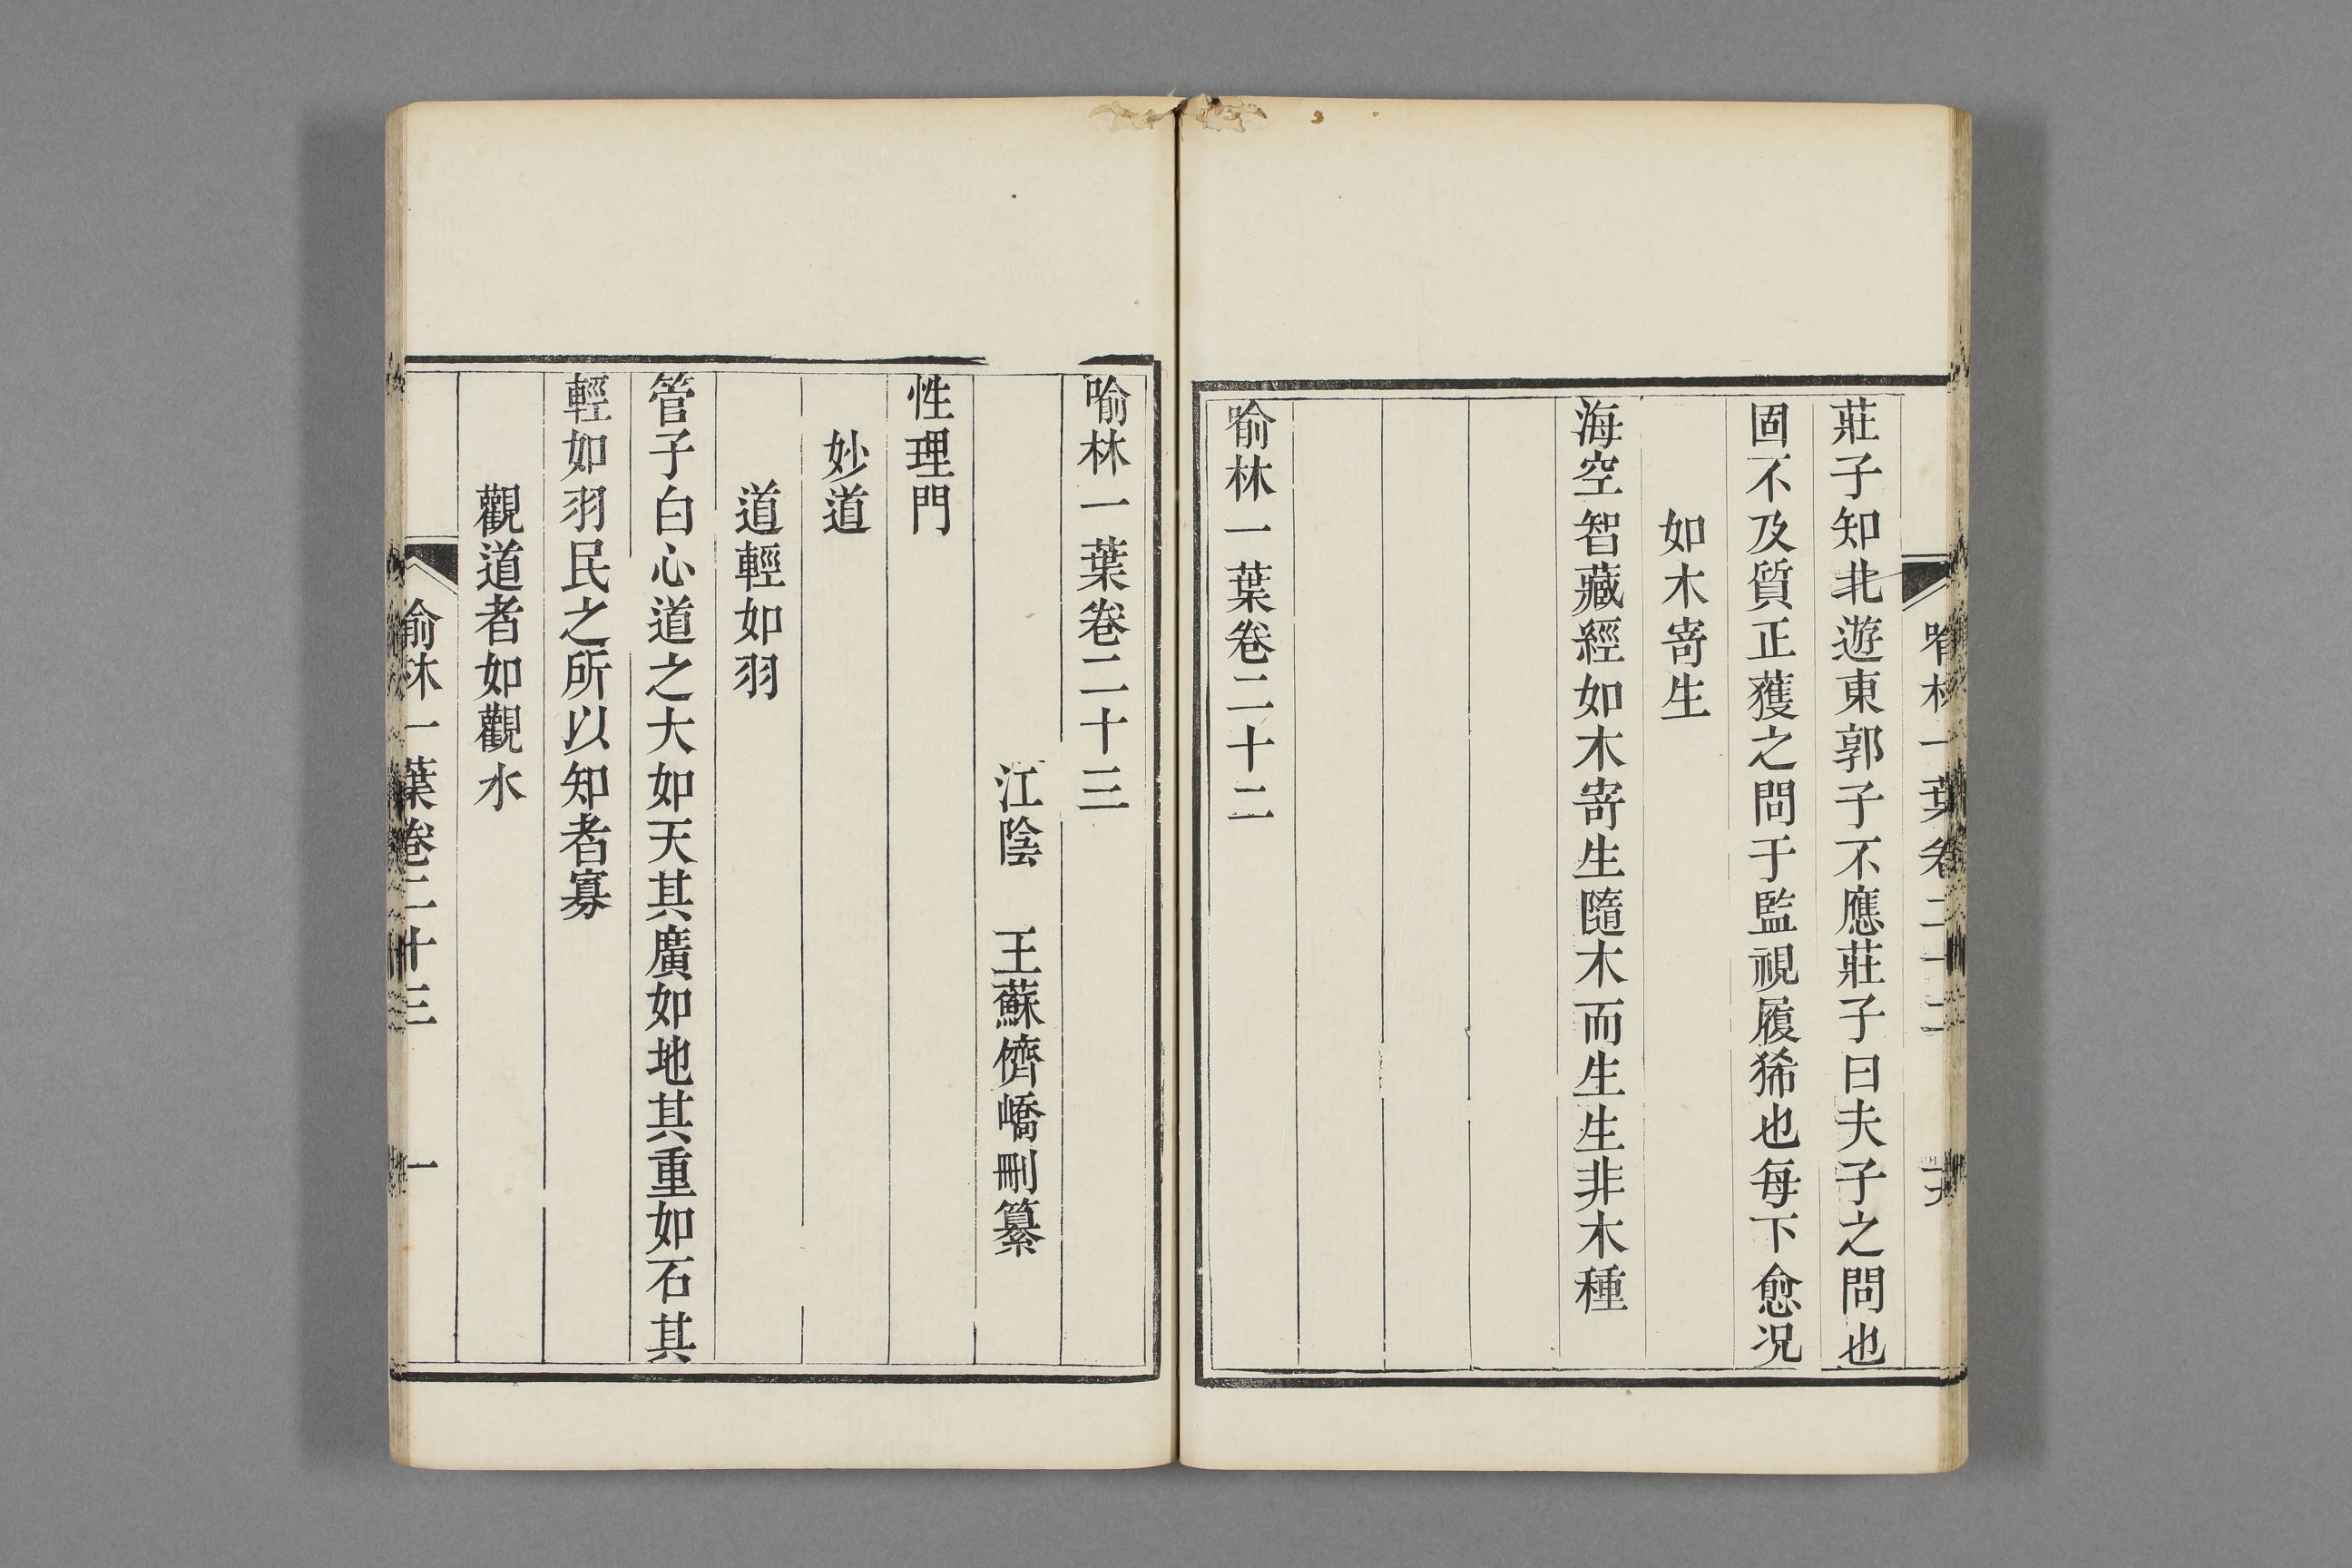 喻林一葉卷二十二
十六
莊子知北遊東郭子不應莊子曰夫子之問也
固不及質正獲之問于監視履狶也每下愈况
如木寄生
海空智藏經如木寄生隨木而生生非木種
喻林一葉卷二十二
喻林一葉卷二十三
江陰 王蘇儕嶠刪纂
性理門
妙道
道輕如羽
管子白心道之大如天其廣如地其重如石其
輕如羽民之所以知者寡
觀道者如觀水
喻林一葉卷二十三
一